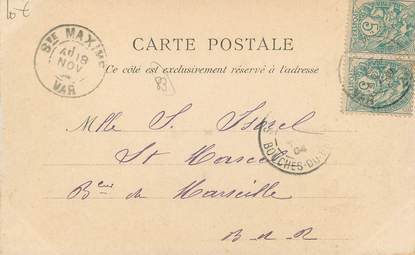 10 €
STE MAXIME
18
NOV
VAR
CARTE POSTALE
Ce côté est exclusivement réservé à l'adresse
83
5
5
VAR
04
BOUCHES-DU-
Mlle S. Isnel
St Marcel
Bce de Marseille
B. d. R